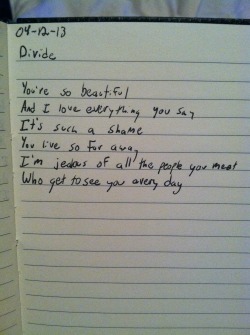 04-12-13
Divide
You're so beautiful
And I love everything you say
It's such a shame
You live so far away
I'm jealous of all the people you meet
Who get to see you every day